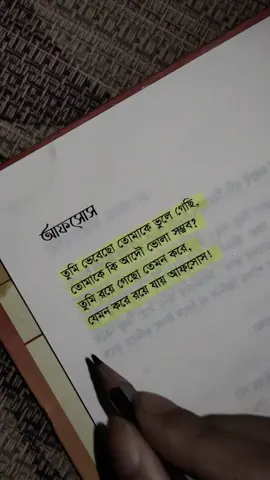 আফসোস
তুমি ভেবেছো তোমাকে ভুলে গেছি,
তোমাকে কি আদৌ ভোলা সম্ভব?
তুমি রয়ে গেছো তেমন করে,
যেমন করে রয়ে যায় আফসোস।